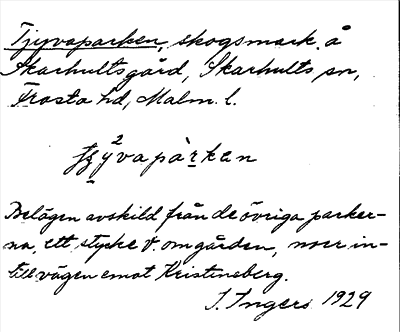 Tjyvaparken, skogsmark å
Skarhultsgård, Skarhults sn,
Frosta hd, Malm. l.
Belägen avskild från de övriga parker-
na, ett stycke v. om gården, norr in-
till vägen emot Kristineberg.
I. Ingers 1929